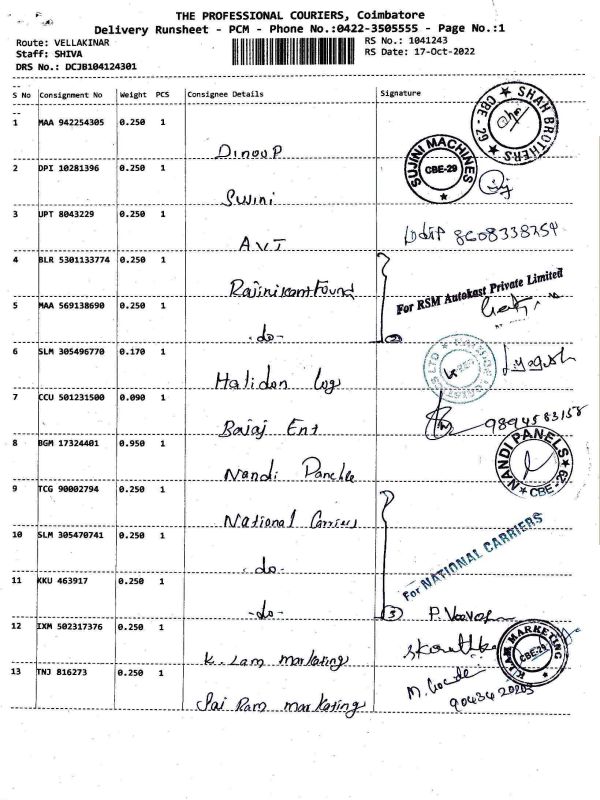 THE PROFESSIONAL COURIERS, Coimbatore
Delivery Runsheet - PCM - Phone No.:0422-3505555 - Page No.:1
Route: VELLAKINAR RS No.: 1041243
Staff: SHIVA RS Date: 17-Oct-2022
DRS No.: DCJB104124301
S No Consignment No Weight PCS Consignee Details Signature
1 MAA 942254305 0.250 1
SHAH BROTHERS ★ CBE - 29 ★
Dinoop
2 DPI 10281396 0.250 1
SUJINI MACHINES CBE-29 ★
Sujini
3 UPT 8043229 0.250 1
AVI 8608338754
4 BLR 5301133774 0.250 1
Rajinikant Found
For RSM Autokast Private Limited
5 MAA 569138690 0.250 1
-do- 2
6 SLM 305496770 0.170 1
Halidon Log
7 CCU 501231500 0.090 1
Bajaj Ent 9894583158
8 BGM 17324401 0.950 1
NANDI PANELS ★ CBE-29 ★
Nandi
9 TCG 90002794 0.250 1
National Carriers
10 SLM 305470741 0.250 1
-do-
For NATIONAL CARRIERS
11 KKU 463917 0.250 1
-do- 3
12 IXM 502317376 0.250 1
K. Lam marketing
MARKETING CBE-29 ★
13 TNJ 816273 0.250 1
Sai Ram marketing